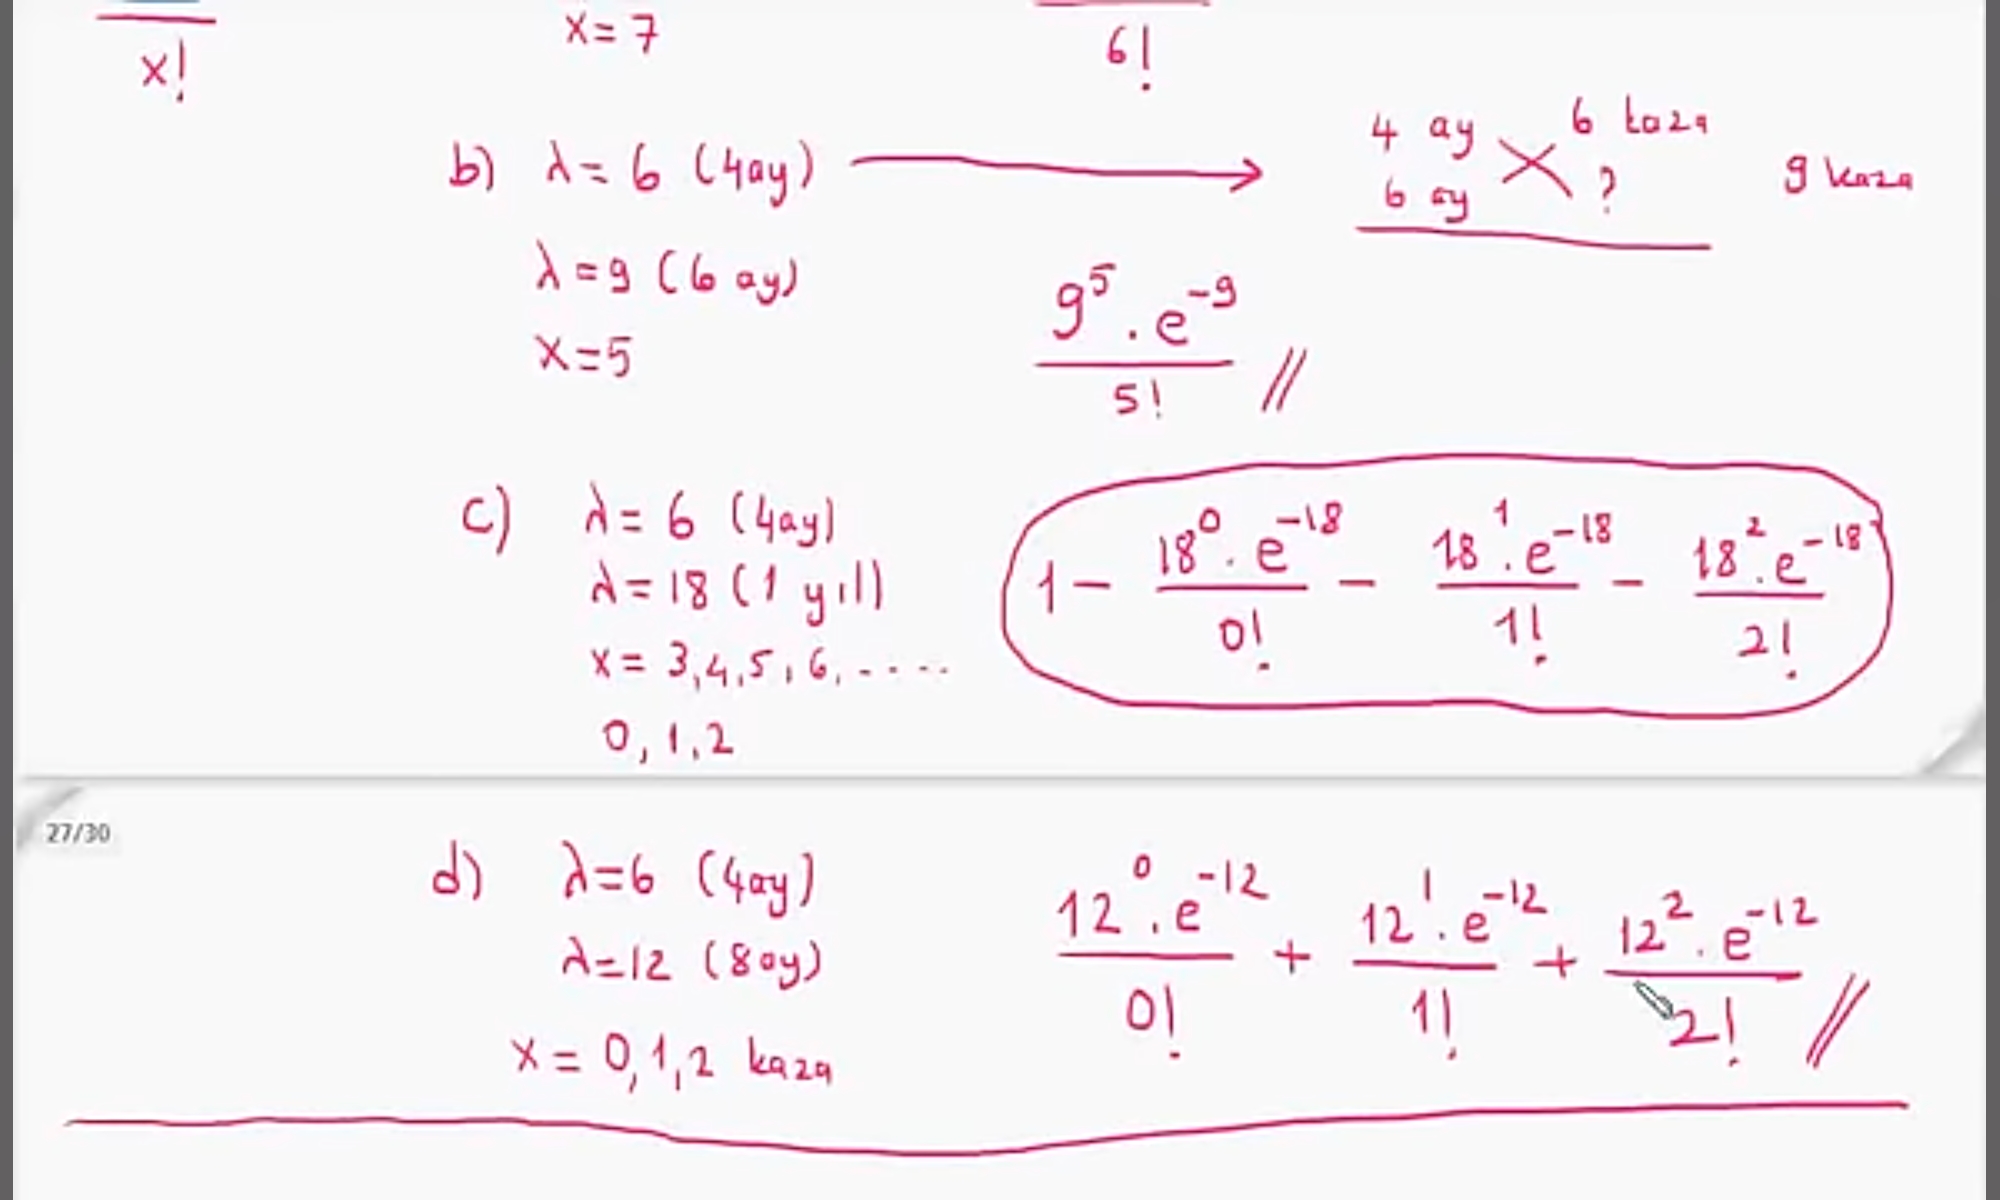 x!
x=7
6!
b) λ=6 (4ay)
4 ay 6 kaza
6 ay ?
9 kaza
λ=9 (6 ay)
x=5
9⁵.e⁻⁹
5!
c) λ=6 (4ay)
λ=18 (1 yıl)
x=3,4,5,6,....
0,1,2
1- 18⁰.e⁻¹⁸ - 18¹.e⁻¹⁸ - 18².e⁻¹⁸
0! 1! 2!
27/30
d) λ=6 (4ay)
λ=12 (8ay)
x=0,1,2 kaza
12⁰.e⁻¹² + 12¹.e⁻¹² + 12².e⁻¹²
0! 1! 2!